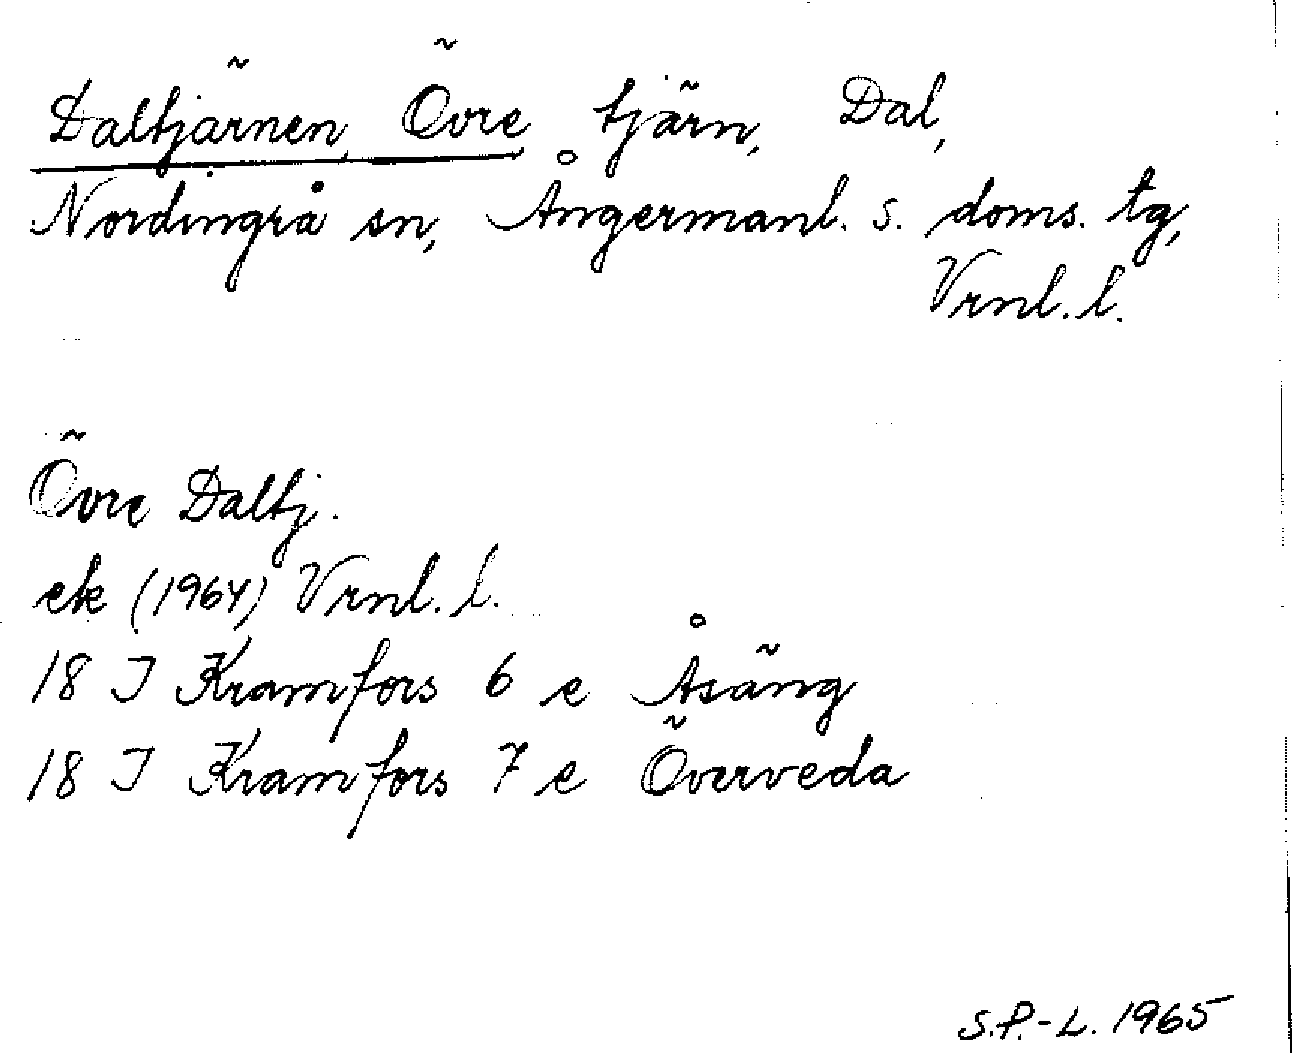 Daltjärnen, Övre tjärn, Dal,
Nordingrå sn, Ångermanl. s. doms. tg,
Vrnl. l.
Övre Daltj.
ek (1964) Vrnl. l.
18 I Kramfors 6 e Åsäng
18 I Kramfors 7 e Överveda
S.P.-L. 1965